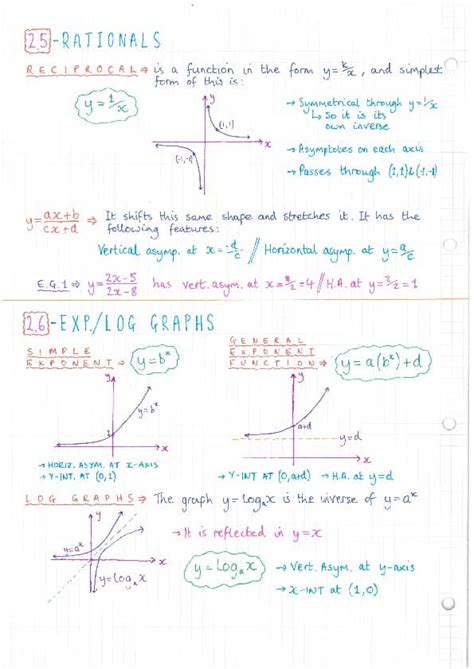 2.5 - RATIONALS
RECIPROCAL ⇒ is a function in the form y = k/x, and simplest
form of this is:
y = 1/x
y
x
(1,1)
(-1,-1)
→ Symmetrical through y=1/x
↳ So it is its
own inverse
→ Asymptotes on each axis
→ Passes through (1,1)&(-1,-1)
y = ax+b/cx+d ⇒ It shifts this same shape and stretches it. It has the
following features:
Vertical asymp. at x = -d/c // Horizontal asymp. at y = a/c
E.G.1 ⇒ y = 2x-5/2x-8 has vert. asym. at x = 8/2 = 4 // H.A. at y = 2/2 = 1
2.6 - EXP./LOG GRAPHS
SIMPLE
EXPONENT ⇒ y = bˣ
y
y=bˣ
1
x
→ HORIZ. ASYM. AT X-AXIS
→ Y-INT. AT (0,1)
GENERAL
EXPONENT
FUNCTION ⇒ y = a(bˣ)+d
y
a+d
y=d
x
→ Y-INT AT (0,a+d) → H.A. at y=d
LOG GRAPHS ⇒ The graph y = logₐx is the inverse of y = aˣ
y
y=aˣ
x
y=logₐx
→ It is reflected in y = x
y = logₐx
→ Vert. Asym. at y-axis
→ x-INT at (1,0)